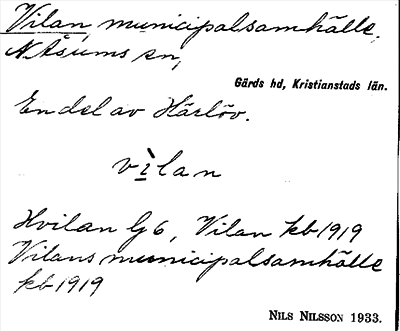 Vilan, municipalsamhälle,
N. Åsums sn,
Gärds hd, Kristianstads län.
En del av Härlöv.
vìlan
Hvilan G 6, Vilan kb 1919
Vilans municipalsamhälle
kb 1919
NILS NILSSON 1933.